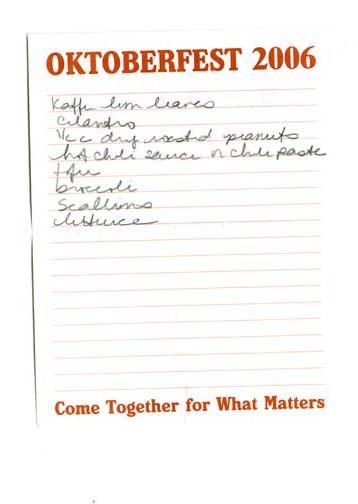 OKTOBERFEST 2006
Kaffir lim leaves
Cilantro
1/2 c dry roasted peanuts
hot chili sauce or chili paste
tofu
broccoli
Scallions
lettuce
Come Together for What Matters